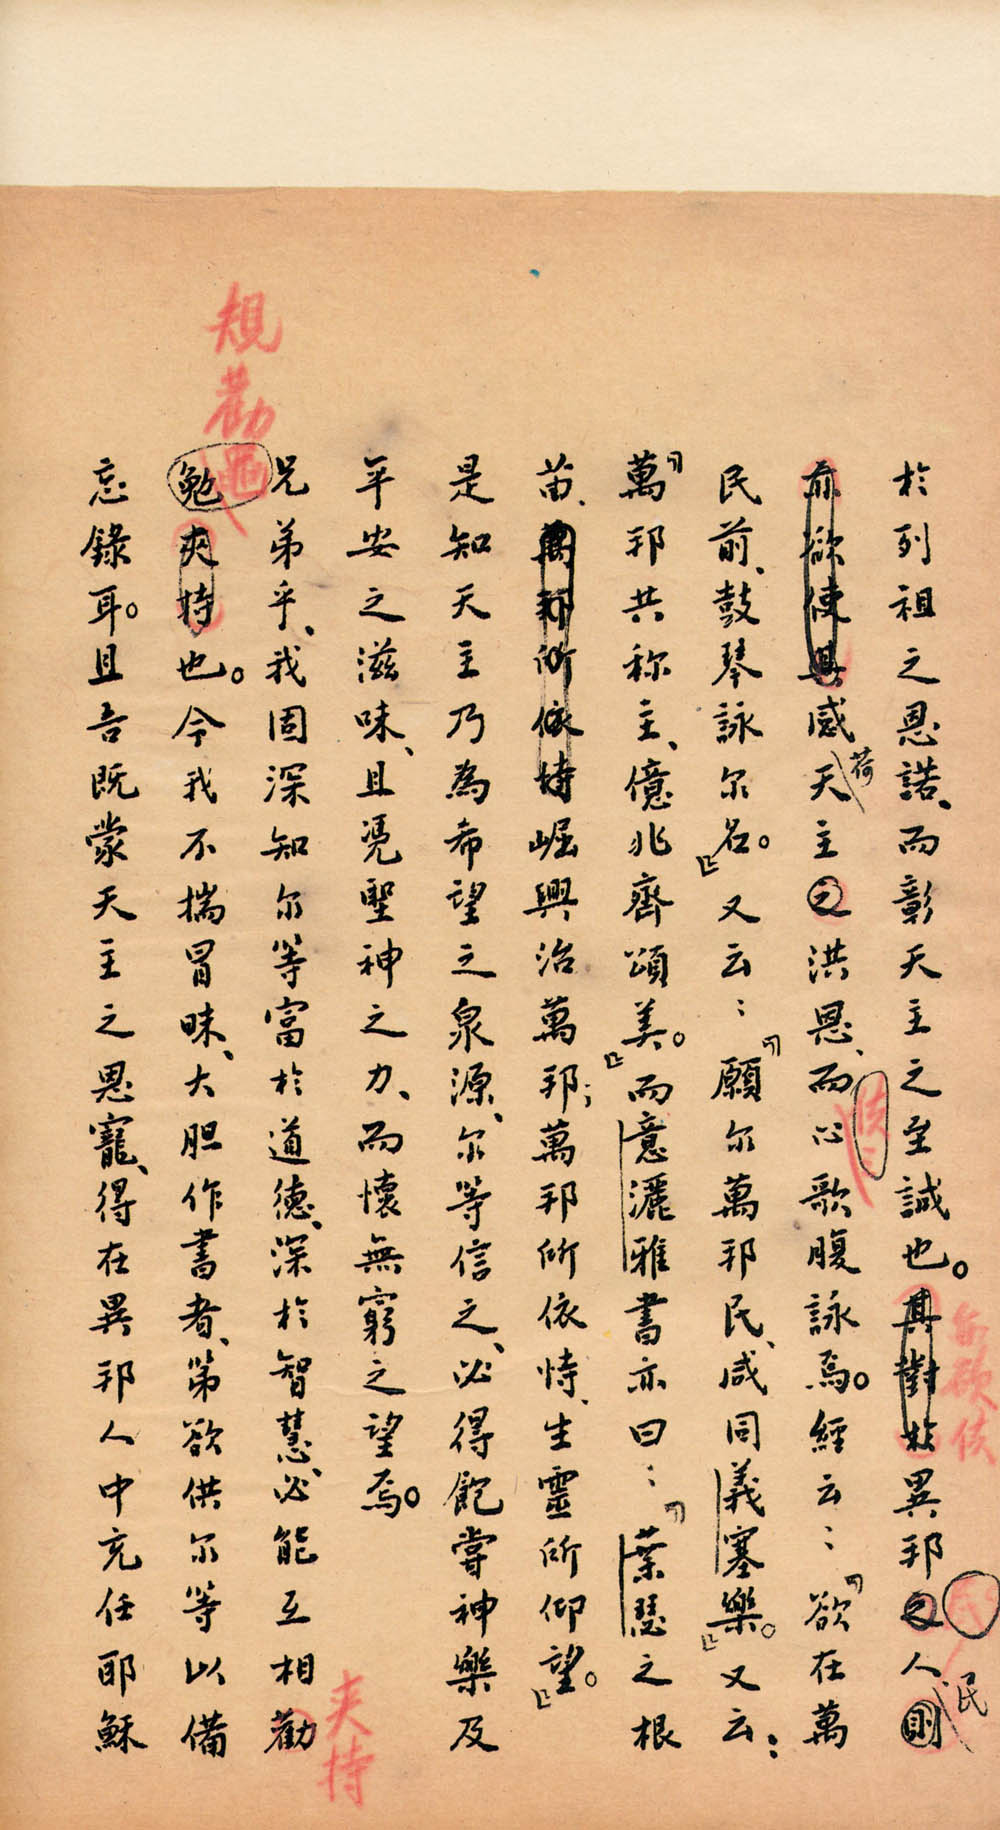 於列祖之恩諾、而彰天主之至誠也。其對於異邦之人則
亦欲使其感天主之洪恩、而心歌腹詠焉。經云：『欲在萬
民前、鼓琴詠尔名。』又云：『願尔萬邦民、咸同義塞樂。』又云：
『萬邦共称主、億兆齊頌美。』而意灑雅書亦曰：『葉瑟之根
苗、萬邦所依恃崛興治萬邦；萬邦所依恃、生靈所仰望。』
是知天主乃為希望之泉源、尔等信之、必得飽嘗神樂及
平安之滋味、且憑聖神之力、而懷無窮之望焉。
兄弟乎、我固深知尔等富於道德、深於智慧、必能互相勸
勉夾持也。今我不揣冒昧、大胆作書者、第欲供尔等以備
忘錄耳。且吾既蒙天主之恩寵、得在異邦人中充任耶穌
規勸
夾持
荷
民